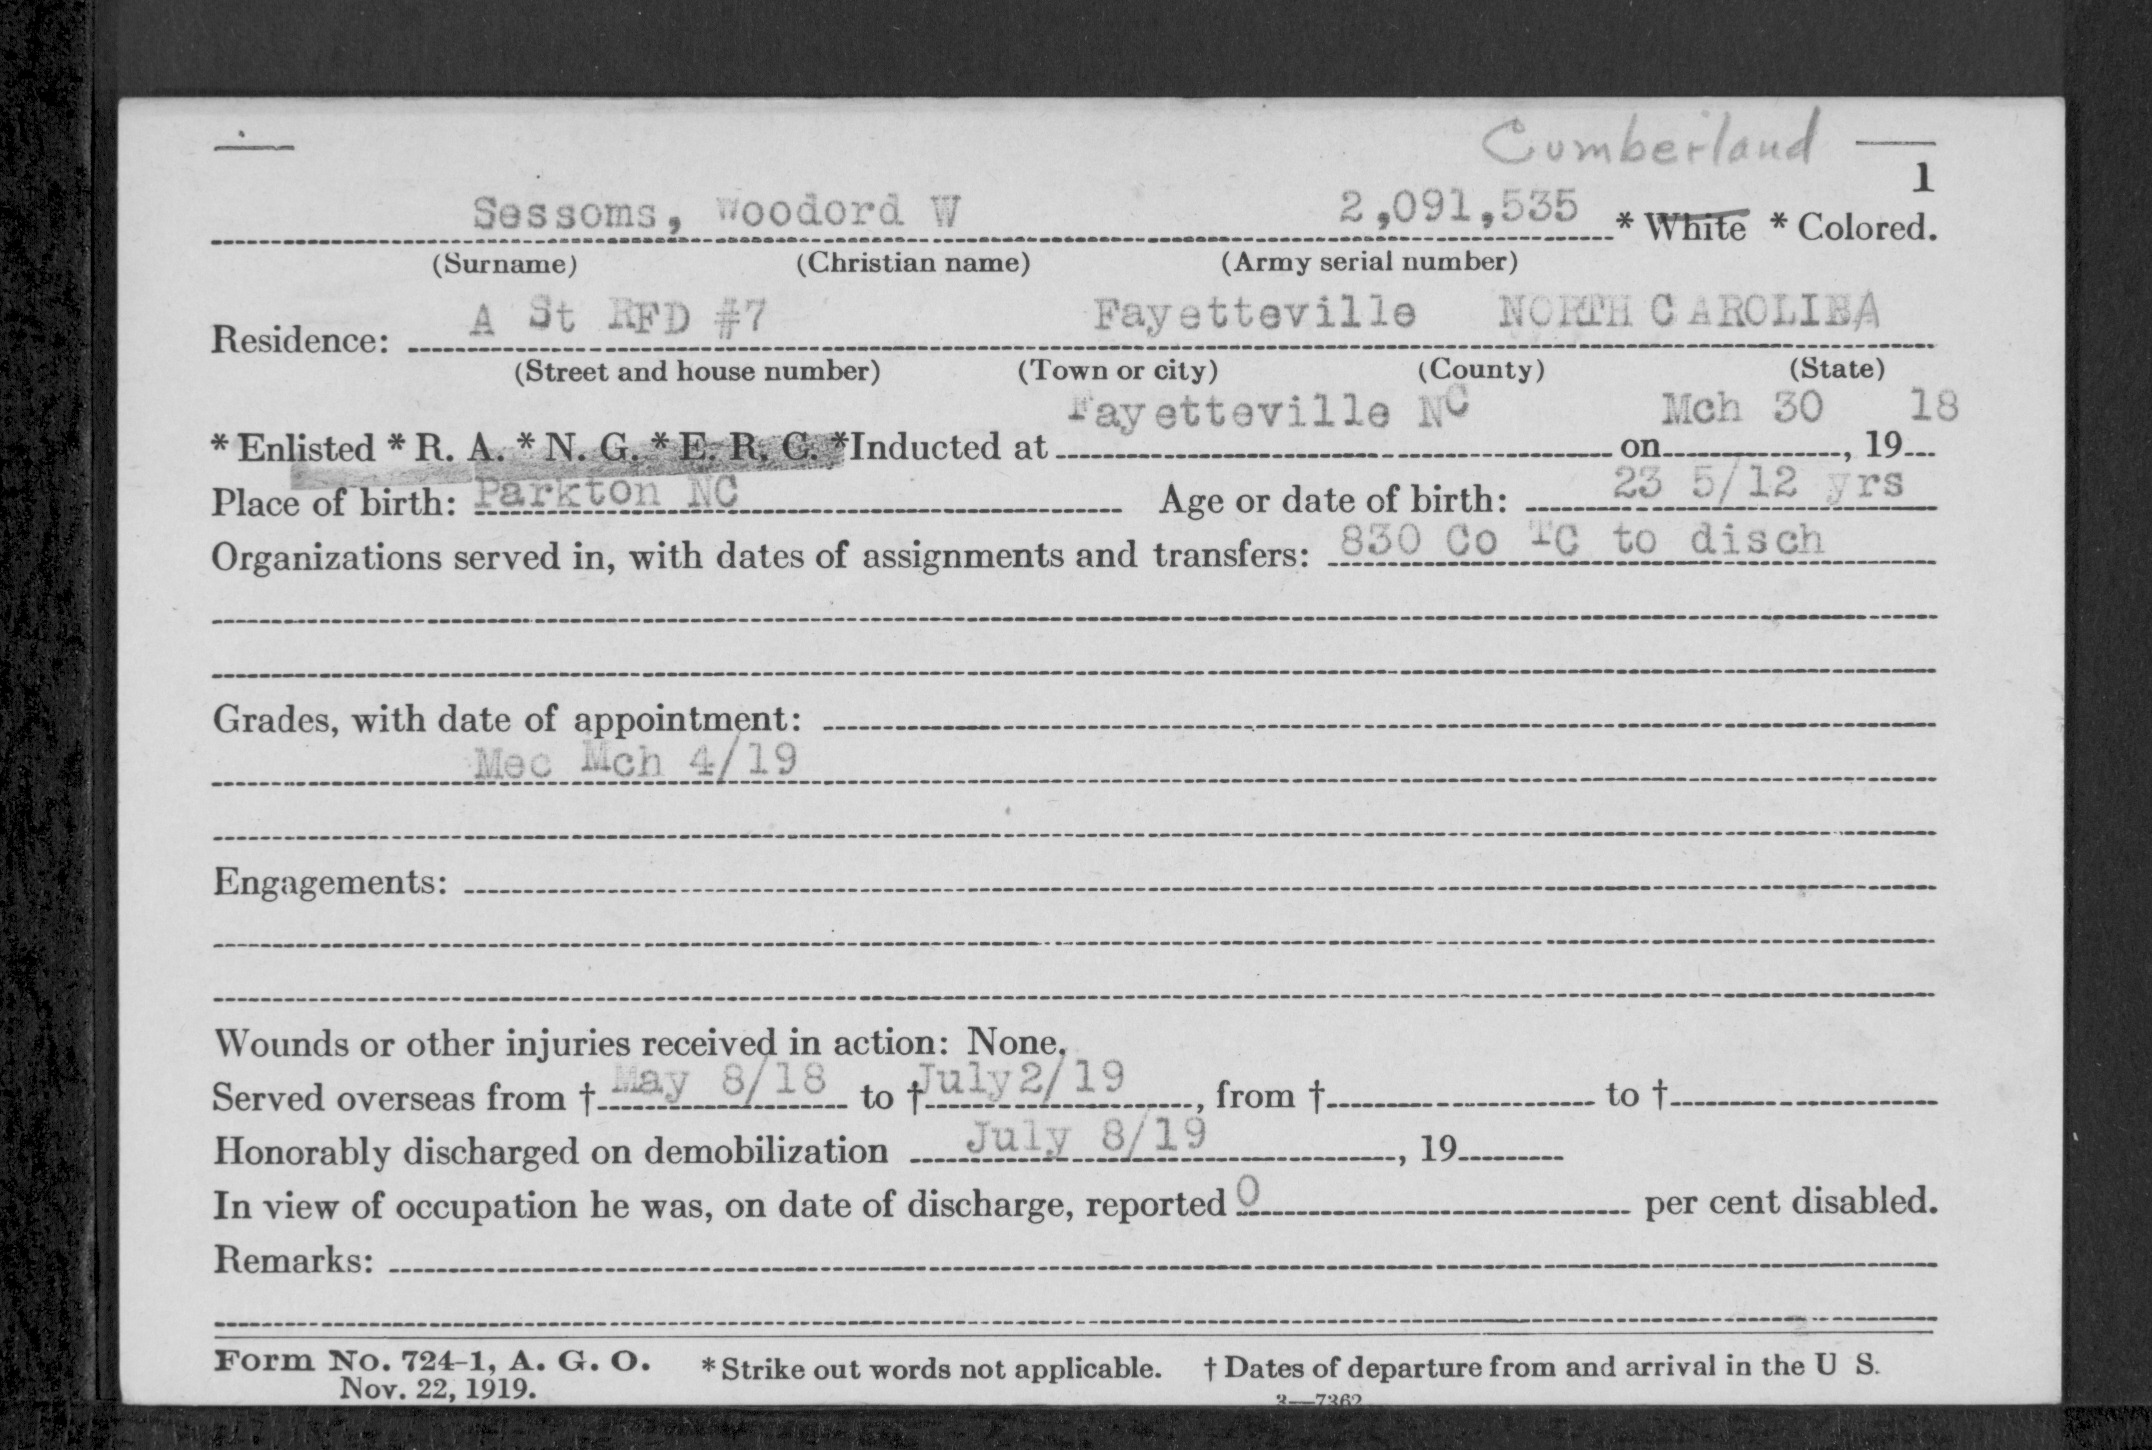 Cumberland
1
Sessoms, Woodord W 2,091,535 * White * Colored.
(Surname) (Christian name) (Army serial number)
Residence: A St RFD #7 Fayetteville NORTH CAROLINA
(Street and house number) (Town or city) (County) (State)
* Enlisted * R. A. * N. G. * E. R. C. *Inducted at Fayetteville NC on Mch 30, 1918
Place of birth: Parkton NC Age or date of birth: 23 5/12 yrs
Organizations served in, with dates of assignments and transfers: 830 Co TC to disch
Grades, with date of appointment:
Mec Mch 4/19
Engagements:
Wounds or other injuries received in action: None.
Served overseas from † May 8/18 to † July 2/19, from † to †
Honorably discharged on demobilization July 8/19, 19
In view of occupation he was, on date of discharge, reported 0 per cent disabled.
Remarks:
Form No. 724-1, A. G. O. * Strike out words not applicable. † Dates of departure from and arrival in the U S.
Nov. 22, 1919. 3—7362